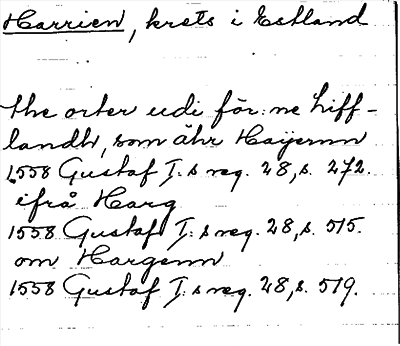 Harrien, krets i Estland
the orter udi för:ne Liff-
landh, som ähr Hayernn
1558 Gustaf I:s reg. 28, s. 272.
ifrå Harg
1558 Gustaf I:s reg. 28, s. 515.
om Hargenn
1558 Gustaf I:s reg. 28, s. 519.